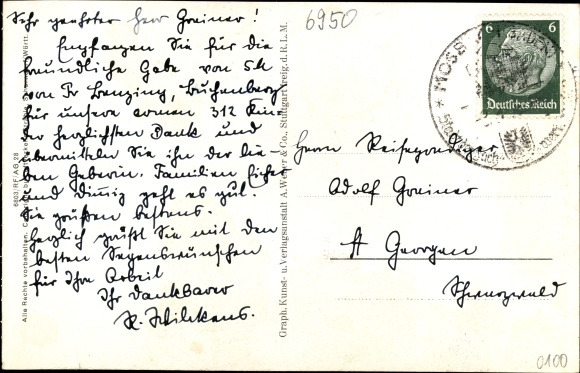 Sehr geehrter Herr Greiner!
Empfangen Sie für die
freundliche Gabe von 5 M
von Fr Benzing, Buchenberg
für unsere armen 312 Kin-
der herzlichsten Dank und
übermitteln Sie ihn der lie-
ben Geberin. Familien
und geht es gut.
Sie grüßen bestens.
Herzlich grüßt Sie mit den
besten Segenswünschen
für Ihre Arbeit
Ihr dankbarer
K. Wilckens.
6950
6
6
Deutsches Reich
MOSB
Herrn Reiseprediger
Adolf Greiner
St Georgen
Schwarzwald
0100
Graph. Kunst- u. Verlagsanstalt A. Weber & Co., Stuttgart
Alle Rechte vorbehalten.